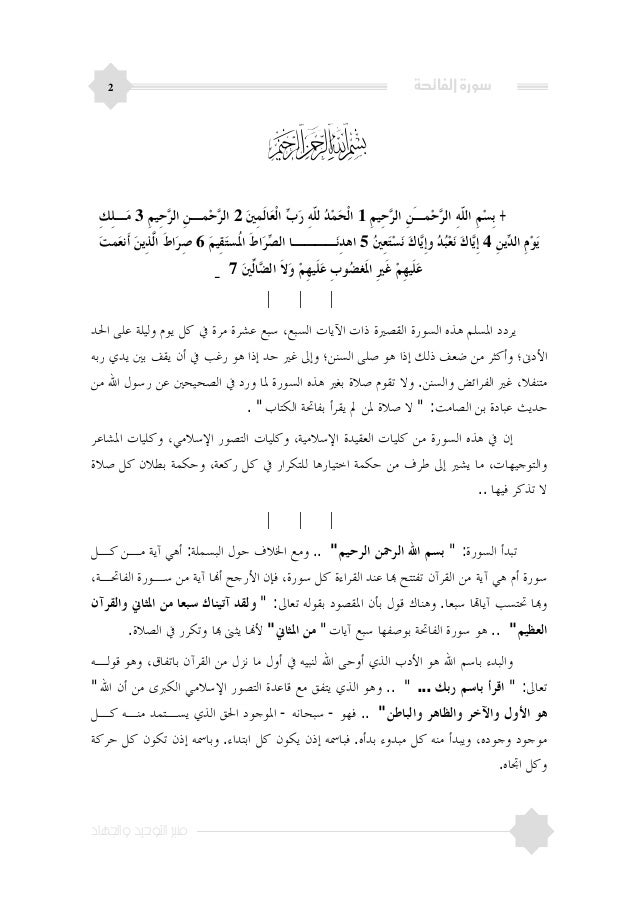 سورة الفاتحة
2
بِسْمِ اللَّهِ الرَّحْمَنِ الرَّحِيمِ
+ بِسْمِ اللّهِ الرَّحْمـَنِ الرَّحِيمِ 1 الْحَمْدُ للّهِ رَبِّ الْعَالَمِينَ 2 الرَّحْمـنِ الرَّحِيمِ 3 مَـلِكِ
يَوْمِ الدِّينِ 4 إِيَّاكَ نَعْبُدُ وإِيَّاكَ نَسْتَعِينُ 5 اهدِنَــــا الصِّرَاطَ المُستَقِيمَ 6 صِرَاطَ الَّذِينَ أَنعَمتَ
عَلَيهِمْ غَيرِ المَغضُوبِ عَلَيهِمْ وَلاَ الضَّالِّينَ 7 _
| | |
يردد المسلم هذه السورة القصيرة ذات الآيات السبع، سبع عشرة مرة في كل يوم وليلة على الحد
الأدنى؛ وأكثر من ضعف ذلك إذا هو صلى السنن؛ وإلى غير حد إذا هو رغب في أن يقف بين يدي ربه
متنفلا، غير الفرائض والسنن. ولا تقوم صلاة بغير هذه السورة لما ورد في الصحيحين عن رسول الله من
حديث عبادة بن الصامت: " لا صلاة لمن لم يقرأ بفاتحة الكتاب " .
إن في هذه السورة من كليات العقيدة الإسلامية، وكليات التصور الإسلامي، وكليات المشاعر
والتوجيهات، ما يشير إلى طرف من حكمة اختيارها للتكرار في كل ركعة، وحكمة بطلان كل صلاة
لا تذكر فيها ..
| | |
تبدأ السورة: " بسم الله الرحمن الرحيم" .. ومع الخلاف حول البسملة: أهي آية مـن كـل
سورة أم هي آية من القرآن تفتتح بها عند القراءة كل سورة، فإن الأرجح أنها آية من سـورة الفاتحـة،
وبها تحتسب آياتها سبعا. وهناك قول بأن المقصود بقوله تعالى: " ولقد آتيناك سبعا من المثاني والقرآن
العظيم" .. هو سورة الفاتحة بوصفها سبع آيات " من المثاني" لأنها يثنى بها وتكرر في الصلاة.
والبدء باسم الله هو الأدب الذي أوحى الله لنبيه في أول ما نزل من القرآن باتفاق، وهو قولـه
تعالى: " اقرأ باسم ربك ... " .. وهو الذي يتفق مع قاعدة التصور الإسلامي الكبرى من أن الله "
هو الأول والآخر والظاهر والباطن" .. فهو - سبحانه - الموجود الحق الذي يسـتمد منـه كـل
موجود وجوده، ويبدأ منه كل مبدوء بدأه. فباسمه إذن يكون كل ابتداء. وباسمه إذن تكون كل حركة
وكل اتجاه.
منبر التوحيد والجهاد